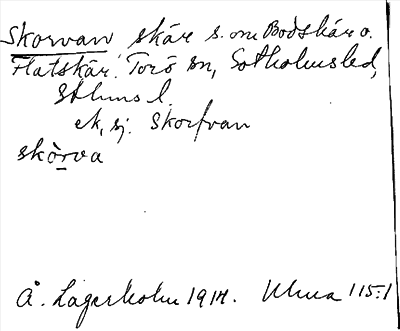 Skorvan skär s. om Bodskär o.
Flatskär. Torö sn, Sotholms hd,
Sthms l.
ek, sj. Skorfvan
skòrva
Å. Lagerholm 1914. 115:1